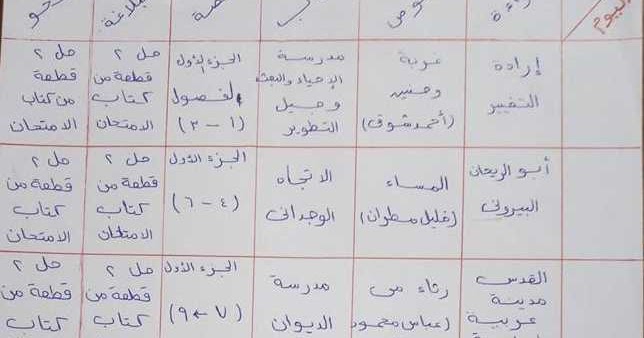 اليوم
إرادة
التغيير
غربة
وحنين
(أحمد شوقى)
مدرسة
الإحياء والبعث
وجيل
التطوير
الجزء الأول
الفصول
(١ - ٣)
حل ٢
قطعة من
كتاب
الامتحان
حل ٢
قطعة
من كتاب
الامتحان
أبو الريحان
البيرونى
المساء
(خليل مطران)
الاتجاه
الوجدانى
الجزء الأول
(٤ - ٦)
حل ٢
قطعة من
كتاب
الامتحان
حل ٢
قطعة من
كتاب
الامتحان
القدس
مدينة
عربية
رثاء مى
(عباس محمود
مدرسة
الديوان
الجزء الأول
(٧ ← ٩)
حل ٢
قطعة من
كتاب
حل ٢
قطعة من
كتاب